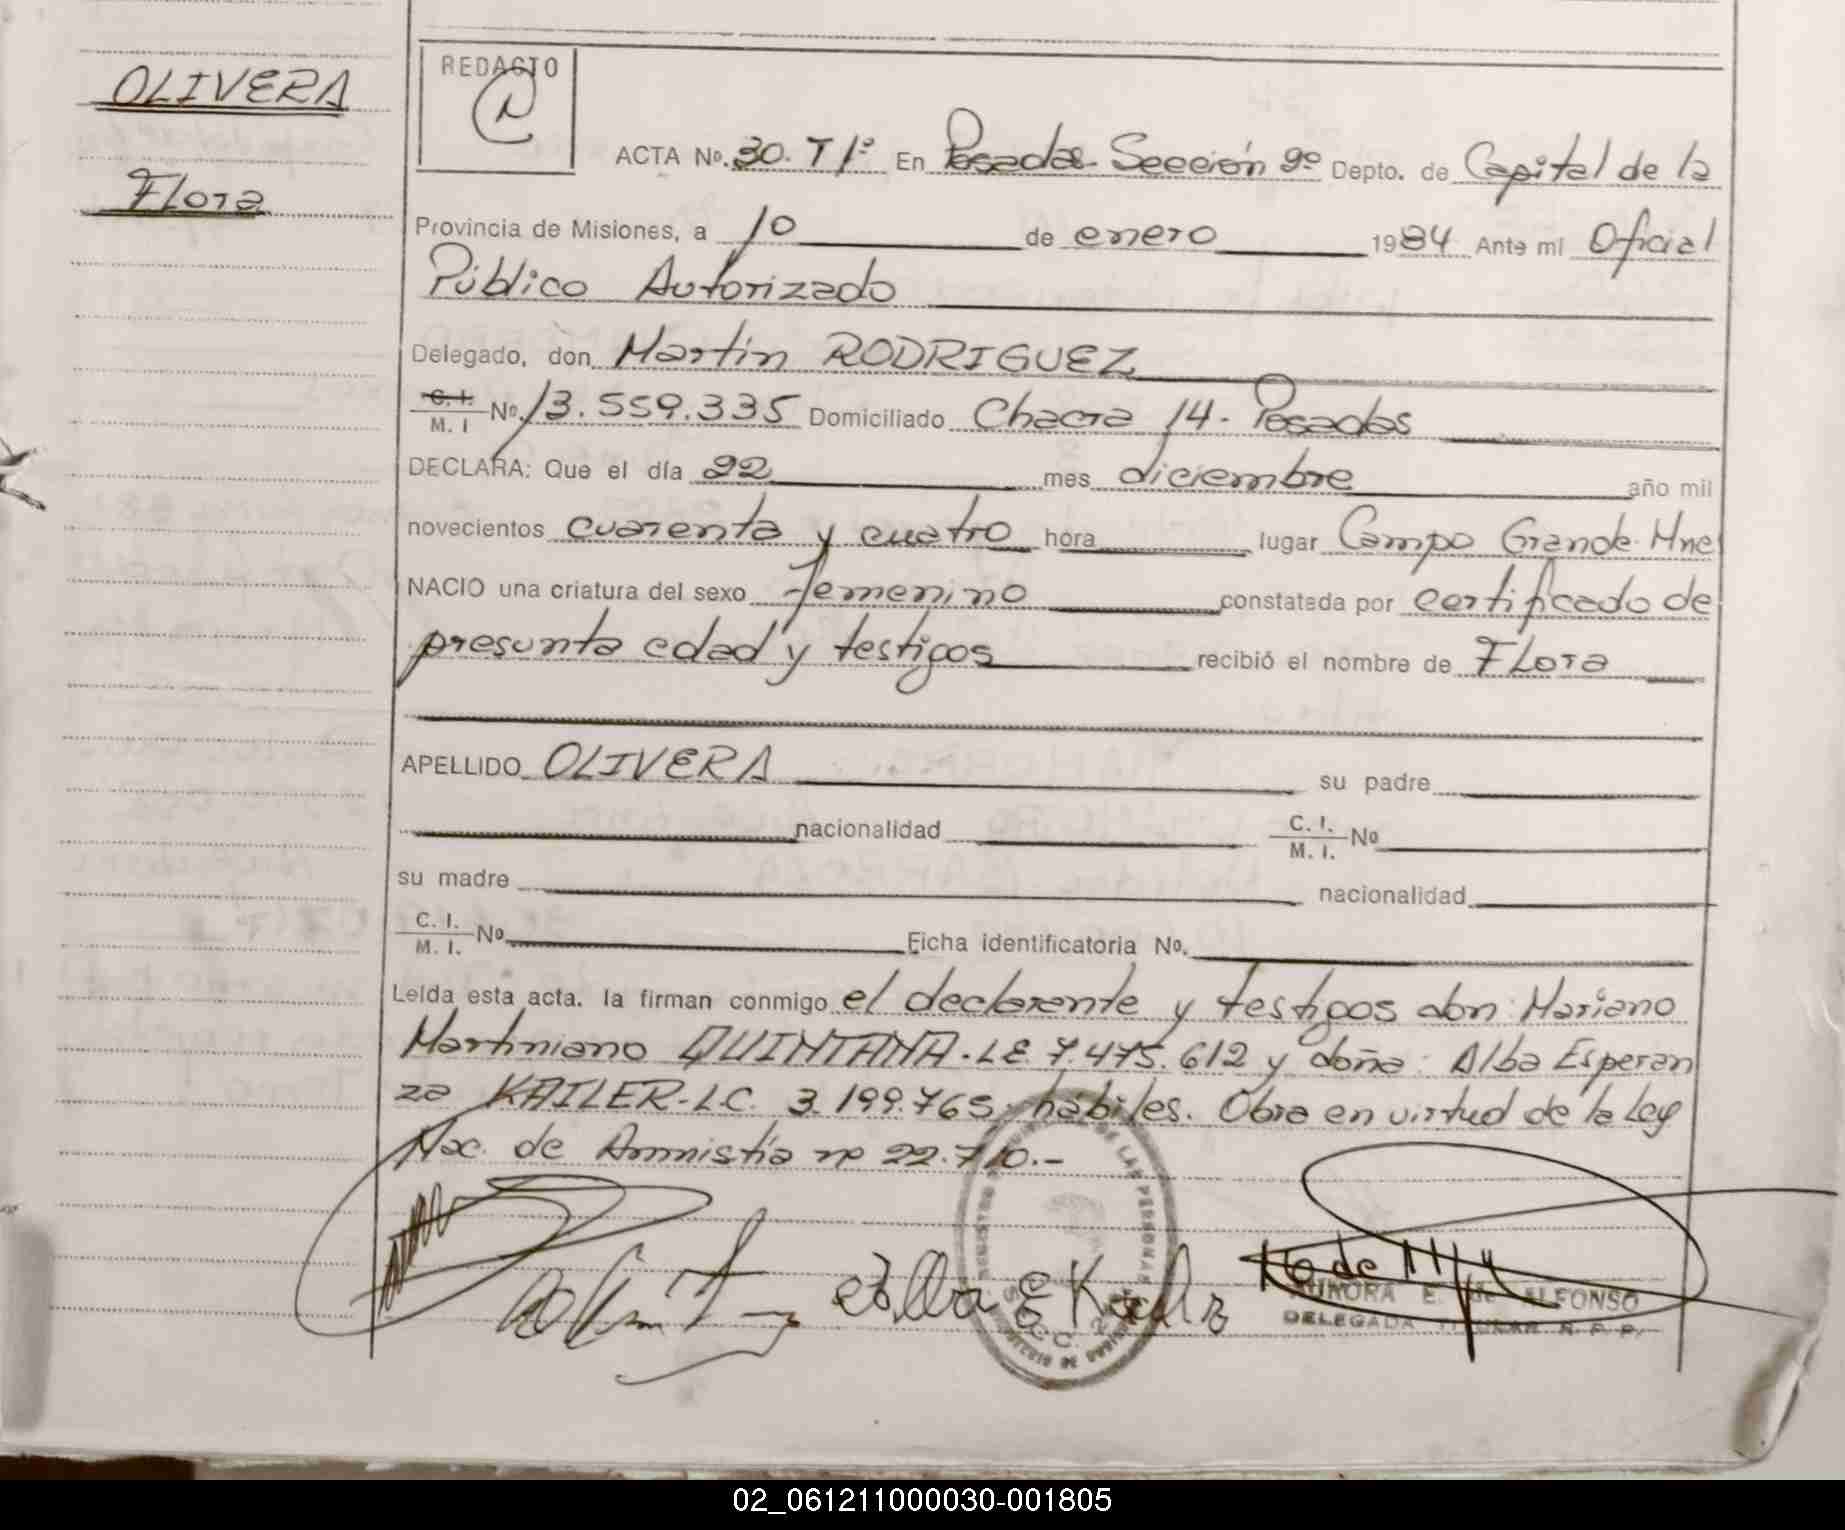 OLIVERA
Flora
REDACTO
ACTA No. 30. T 1º En Posadas Sección 9º Depto. de Capital de la
Provincia de Misiones, a 10 de enero 1984 Ante mi Oficial
Público Autorizado
Delegado, don Martin RODRIGUEZ
C. I.
M. I No. 13.559.335 Domiciliado Chacra 14 - Posadas
DECLARA: Que el día 22 mes diciembre año mil
novecientos cuarenta y cuatro hora lugar Campo Grande Mnes
NACIO una criatura del sexo femenino constatada por certificado de
presunta edad y testigos recibió el nombre de Flora
APELLIDO OLIVERA su padre
nacionalidad C. I. M. I. No
su madre nacionalidad
C. I. M. I. No. Ficha identificatoria No.
Leída esta acta. la firman conmigo el declarante y testigos don: Mariano
Martiniano QUINTANA. LE. 7.475.612 y doña: Alba Esperan
za KAILER - LC. 3.199.765, hábiles. Obra en virtud de la Ley
Nac. de Amnistía nº 22.710.-
AURORA E. de ALFONSO
DELEGADA TITULAR R. P. P.
02_061211000030-001805